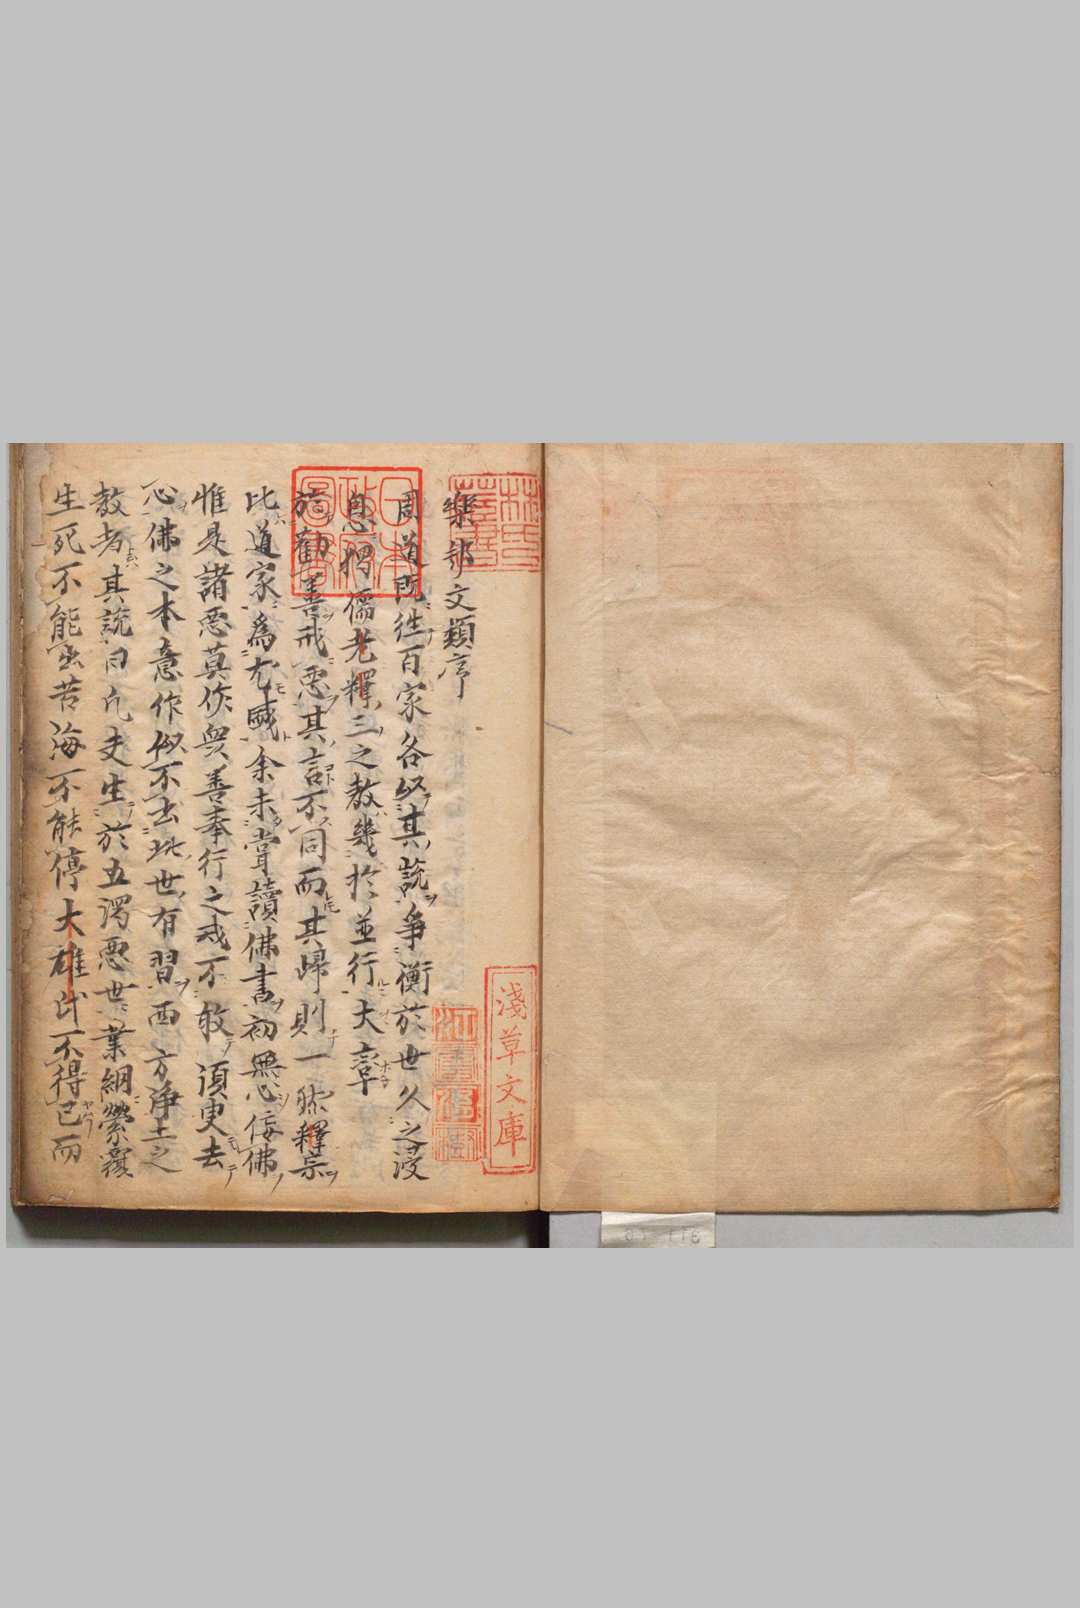 樂邦文類序
周道既往百家各以其說爭衡於世久之寖
息獨儒老釋三之教幾於並行大率
於勸善戒惡其言不同而其歸則一然釋宗
比道家爲尤盛余未嘗讀佛書初無心佞佛
惟是諸惡莫作衆善奉行之戒不敢須臾去
心佛之本意作似不出此世有習西方淨土之
教者其說曰凡夫生於五濁惡世業網縈纏
生死不能出苦海不能停大雄氏不得已而
林氏藏書
日本政府圖書
淺草文庫
江雲渭樹